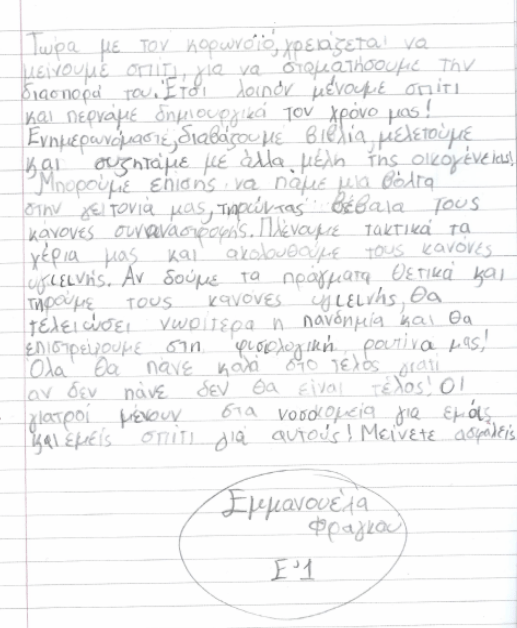 Τώρα με τον κορωνοϊό, χρειάζεται να
μείνουμε σπίτι, για να σταματήσουμε την
διασπορά του. Έτσι λοιπόν μένουμε σπίτι
και περνάμε δημιουργικά τον χρόνο μας!
Ενημερωνόμαστε, διαβάζουμε βιβλία, μελετούμε
και συζητάμε με άλλα μέλη της οικογένειας!
Μπορούμε επίσης να πάμε μια βόλτα
στην γειτονιά μας, τηρώντας βέβαια τους
κανόνες συναναστροφής. Πλένουμε τακτικά τα
χέρια μας και ακολουθούμε τους κανόνες
υγιεινής. Αν δούμε τα πράγματα θετικά και
τηρούμε τους κανόνες υγιεινής, θα
τελειώσει νωρίτερα η πανδημία και θα
επιστρέψουμε στη φυσιολογική ρουτίνα μας!
Όλα θα πάνε καλά στο τέλος γιατί
αν δεν πάνε δεν θα είναι τέλος! Οι
γιατροί μένουν στα νοσοκομεία για εμάς
και εμείς σπίτι για αυτούς! Μείνετε ασφαλείς
Εμμανουέλα
Φράγκου
Ε'1